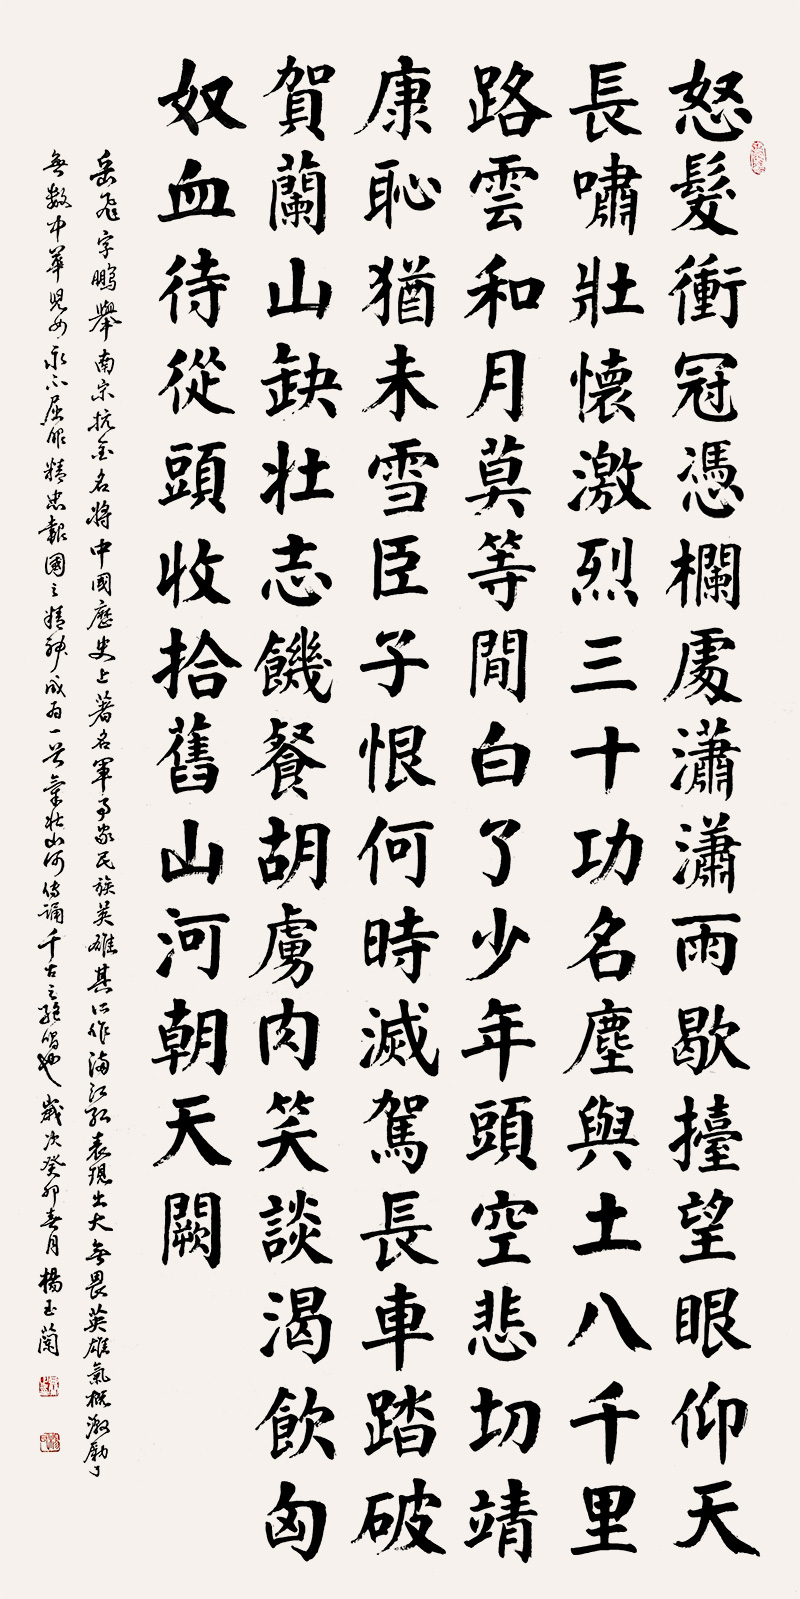 怒髮衝冠憑欄處瀟瀟雨歇擡望眼仰天
長嘯壯懷激烈三十功名塵與土八千里
路雲和月莫等閒白了少年頭空悲切靖
康恥猶未雪臣子恨何時滅駕長車踏破
賀蘭山缺壯志饑餐胡虜肉笑談渴飲匈
奴血待從頭收拾舊山河朝天闕
岳飛字鵬舉南宋抗金名將中國歷史上著名軍事家民族英雄其所作滿江紅表現出大無畏英雄氣概激勵了
無數中華兒女永不屈服精忠報國之精神成為一首氣壯山河傳誦千古之絕唱也歲次癸卯春月楊玉蘭